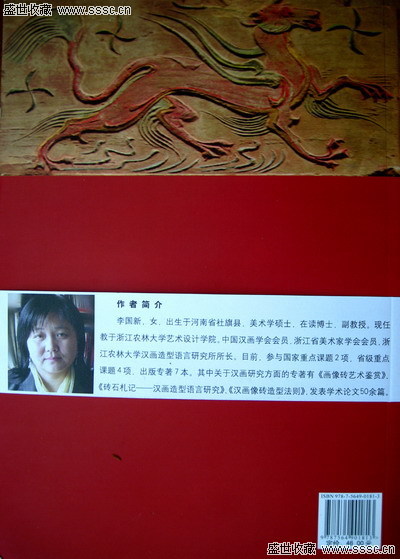 盛世收藏
www.sssc.cn
盛世收藏
www.sssc.cn
作者简介
李国新，女，出生于河南省社旗县，美术学硕士，在读博士，副教授。现任
教于浙江农林大学艺术设计学院，中国汉画学会会员，浙江省美术家学会会员，浙
江农林大学汉画造型语言研究所所长。目前，参与国家重点课题2项，省级重点
课题4项，出版专著7本。其中关于汉画研究方面的专著有《画像砖艺术鉴赏》、
《砖石札记——汉画造型语言研究》、《汉画像砖造型法则》，发表学术论文50余篇。
ISBN 978-7-5649-0181-3
9 787564 901813
定价 46.00 元
盛世收藏
www.sssc.cn
盛世收藏
www.sssc.cn